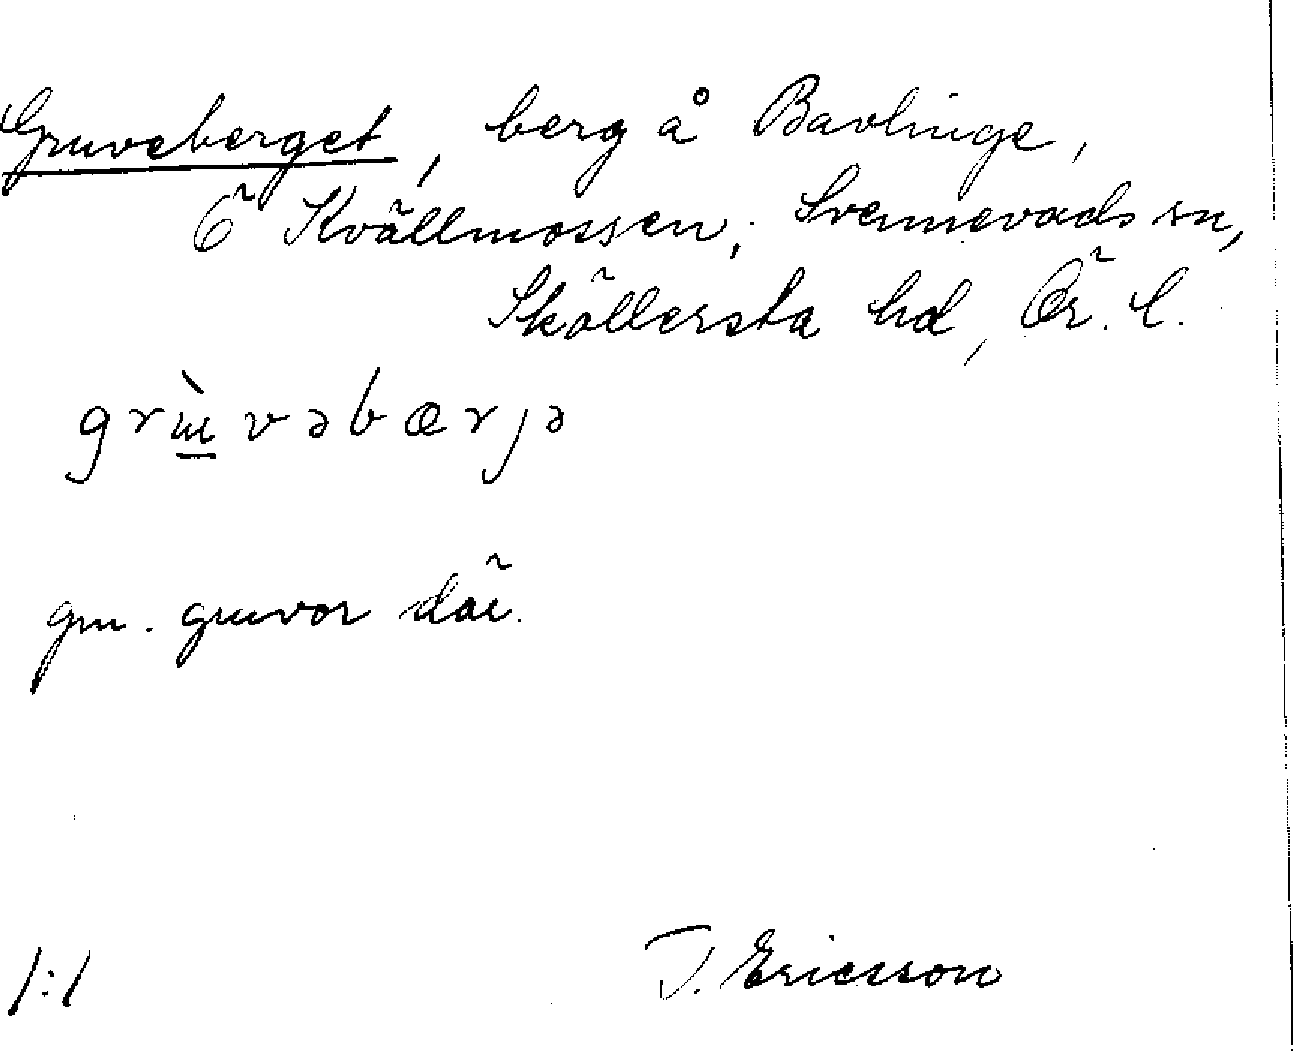 Gruveberget, berg å Bavlinge,
Ö Kvällmossen, Svennevads sn,
Sköllersta hd, Ör. l.
grɯ̀vəbærjə
gm. gruvor där.
1:1 J. Ericsson